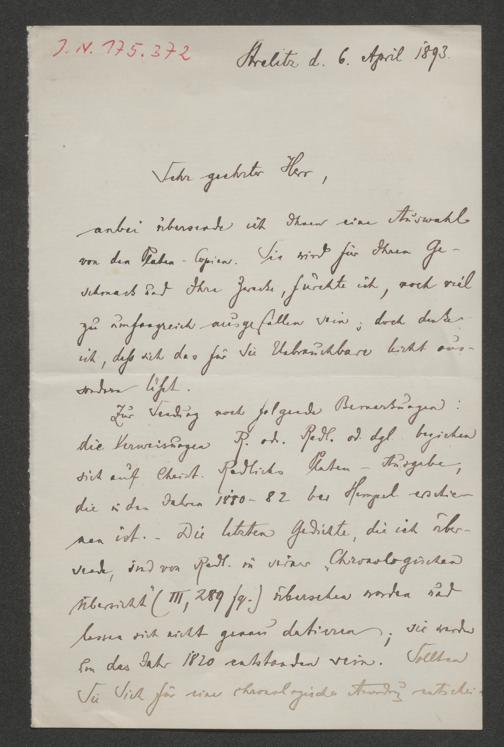 J. N. 175.372
Strelitz d. 6. April 1893.
Sehr geehrter Herr,
anbei übersende ich Ihnen eine Auswahl
von den Platen-Copien. Sie wird für Ihren Ge-
schmack und Ihre Zwecke, fürchte ich, noch viel
zu umfangreich ausgefallen sein; doch denke
ich, daß sich das für Sie Unbrauchbare leicht aus-
sondern läßt.
Zur Sendung noch folgende Bemerkungen:
die Verweisungen R. od. Redl. od. dgl. beziehen
sich auf Christ. Redlichs Platen-Ausgabe,
die in den Jahren 1880-82 bei Hempel erschie-
nen ist. - Die letzten Gedichte, die ich über-
sende, sind von Redl. in seiner "Chronologischen
Übersicht" (III, 289 fg.) übersehen worden und
lassen sich nicht genau datieren; sie werden
um das Jahr 1820 entstanden sein. Sollten
Sie Sich für eine chronologische Anordng entschei-